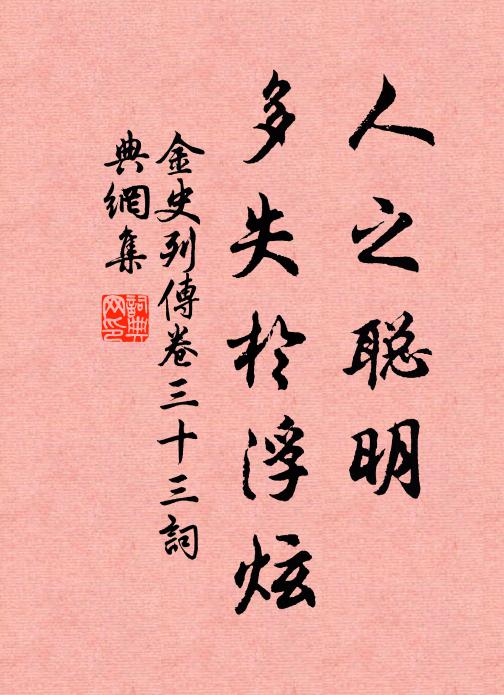 人之聪明
多失於浮炫
金史列傳卷三十三詞
典網集
詞典網印